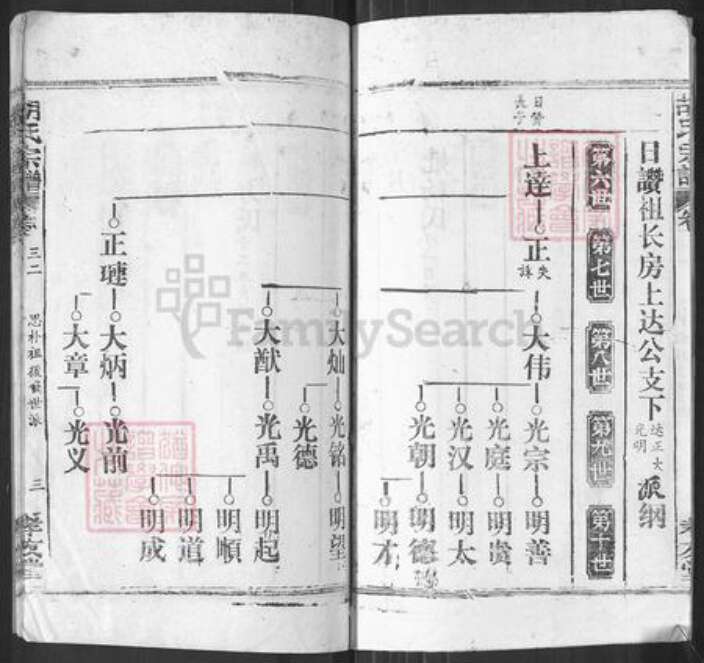 胡氏宗譜
日讚祖长房上达公支下
达正大
光明
派纲
第六世
第七世
第八世
第九世
第十世
日讚
長子
上達
正
失諱
大伟
光宗
明善
光庭
明贵
光汉
明太
光朝
明德
明才
大灿
光铭
明望
光德
大猷
光禹
明起
明順
明道
明成
正璉
大炳
光前
大章
光义
胡氏宗譜
三二
思朴祖後
世派
三
FamilySearch